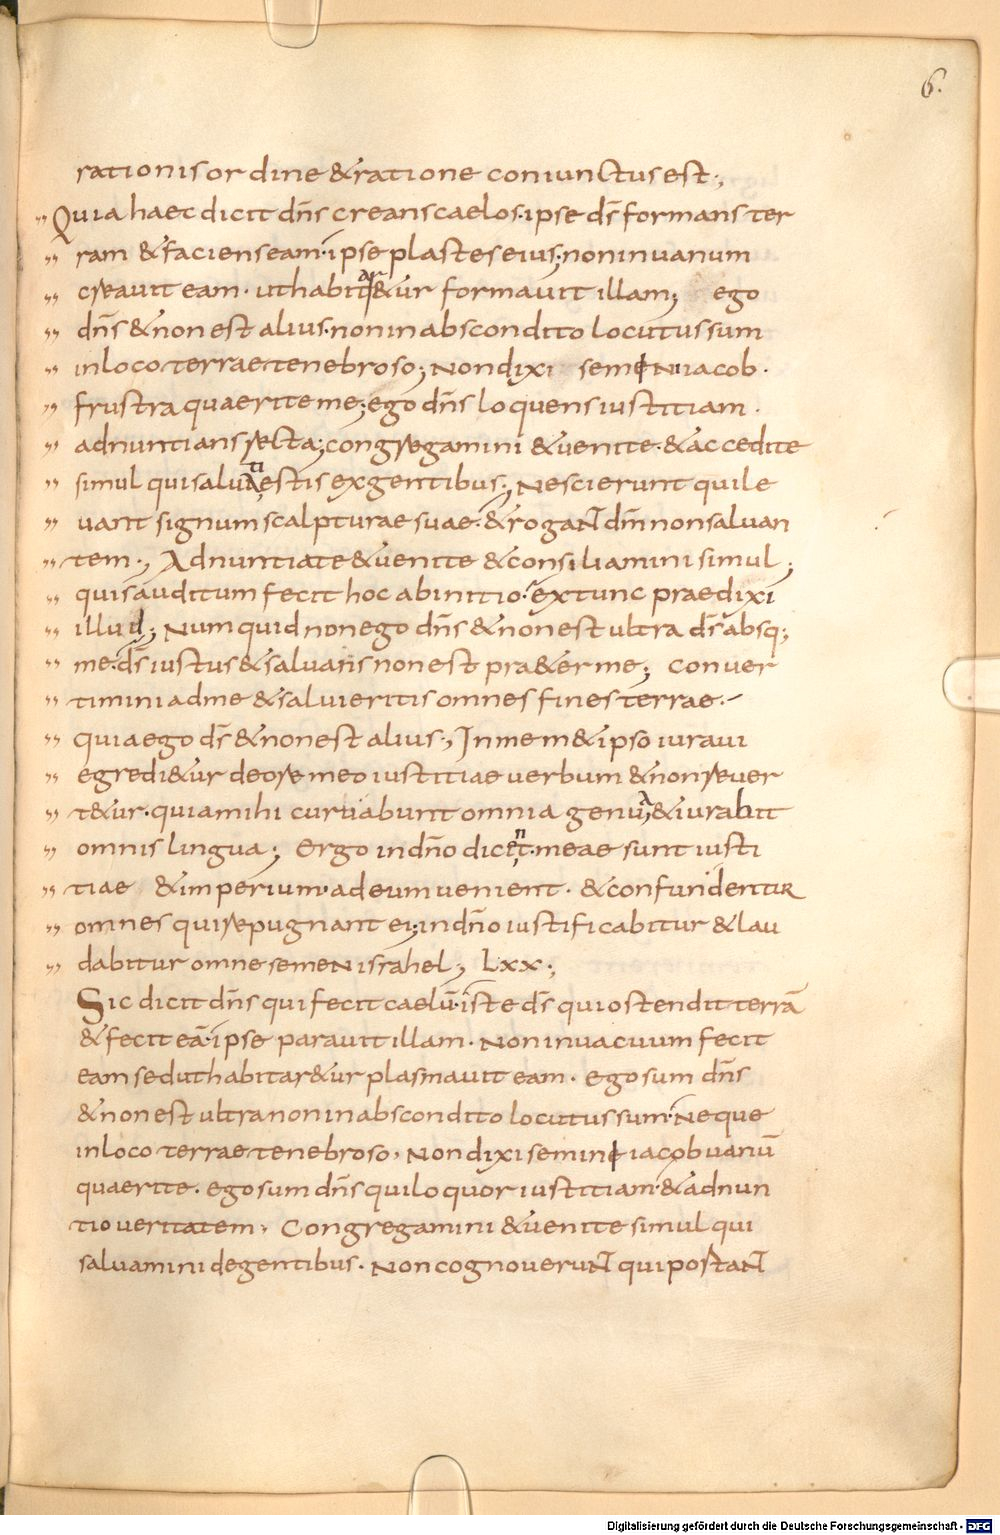 6.
rationis ordine & ratione coniunctus est;,
,, Quia haec dicit dn̄s creans caelos · ipse ds̄ formans ter
,, ram & faciens eam · ipse plastes eius; non in uanum
,, creauit eam · ut habitar&ur formauit illam; ego
,, dn̄s & non est alius · non in abscondito locutus sum
,, in loco terrae tenebroso; Non dixi semini iacob ·
,, frustra quaerite me; ego dn̄s loquens iustitiam ·
,, adnuntians recta; congregamini & uenite · & accedite
,, simul qui saluati estis ex gentibus; Nescierunt qui le
,, uant signum scalpturae suae · & rogant dm̄ non saluan
,, tem ·, Adnuntiate & uenite & consiliamini simul;
,, quis auditum fecit hoc ab initio · ex tunc praedixi
,, illud; Numquid non ego dn̄s & non est ultra ds̄ absq;
,, me · ds̄ iustus & saluans non est pra&er me; conuer
,, timini ad me & salui eritis omnes fines terrae ·
,, quia ego ds̄ & non est alius ·, In mem&ipso iuraui
,, egredi&ur de ore meo iustitiae uerbum & non reuer
,, t&ur · quia mihi curuabunt omnia genua & iurabit
,, omnis lingua; Ergo in dn̄o dicent · meae sunt iusti
,, tiae & imperium · ad eum uenient · & confundentur
,, omnes qui repugnant ei; in dn̄o iustificabitur & lau
,, dabitur omne semen israhel; Lxx;
Sic dicit dn̄s qui fecit caelū · iste ds̄ qui ostendit terrā
& fecit eā · ipse parauit illam · Non in uacuum fecit
eam sed ut habitar&ur plasmauit eam · ego sum dn̄s
& non est ultra non in abscondito locutus sum · Neque
in loco terrae tenebroso · Non dixi semini iacob uanū
quaerite · ego sum dn̄s qui loquor iustitiam · & adnun
tio ueritatem · Congregamini & uenite simul qui
saluamini de gentibus · Non cognouerunt qui portant
Digitalisierung gefördert durch die Deutsche Forschungsgemeinschaft - DFG